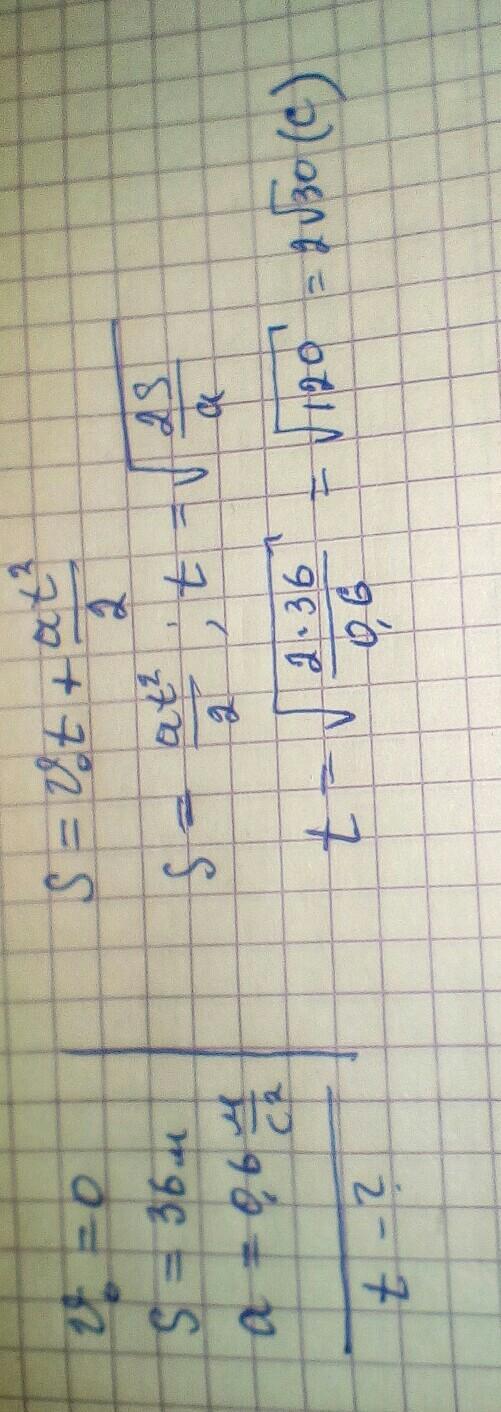 υ₀ = 0
S = 36 м
a = 0,6 м/с²
t - ?
S = υ₀t + at²/2
S = at²/2 ; t = √(2S/a)
t = √(2·36/0,6) = √120 = 2√30 (с)